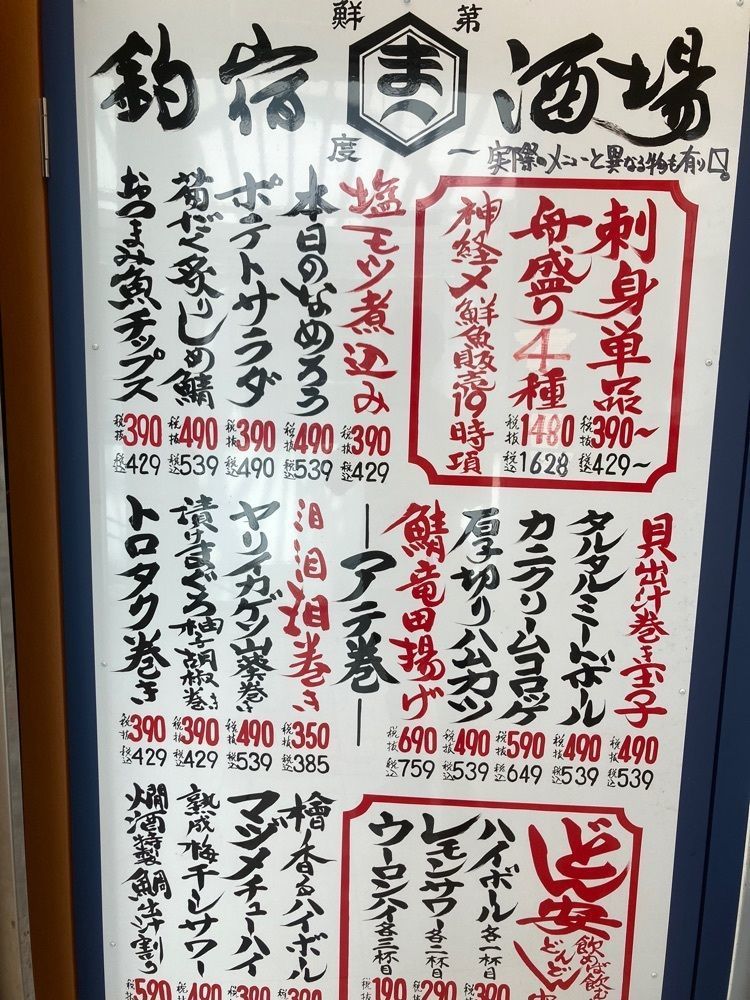 鮮度第一
釣宿 ま 酒場
実際のメニューと異なる物も有り〼。
刺身単品 税抜390〜 税込429〜
舟盛り4種 税抜1480 税込1628
神経〆鮮魚販売19時項
塩モツ煮込み 税抜390 税込429
本日のなめろう 税抜490 税込539
ポテトサラダ 税抜390 税込490
荀だく炙りしめ鯖 税抜490 税込539
おつまみ魚チップス 税抜390 税込429
貝出汁巻き玉子 税抜490 税込539
タルタルミートボール 税抜490 税込539
カニクリームコロッケ 税抜590 税込649
厚切りハムカツ 税抜490 税込539
鯖竜田揚げ 税抜690 税込759
―アテ巻―
泪泪泪巻き 税抜350 税込385
ヤリイカゲソ山葵巻き 税抜490 税込539
漬けまぐろ柚子胡椒巻き 税抜390 税込429
トロタク巻き 税抜390 税込429
どん安
飲めば飲
どんどん
ハイボール各一杯目 390
レモンサワー各二杯目 290
ウーロンハイ各三杯目 190
檜香るハイボール
マジメチューハイ
熟成梅干しサワー
燗酒特製鯛出汁割り